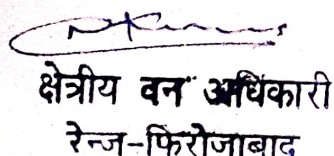 क्षेत्रीय वन अधिकारी
रेन्ज-फिरोजाबाद